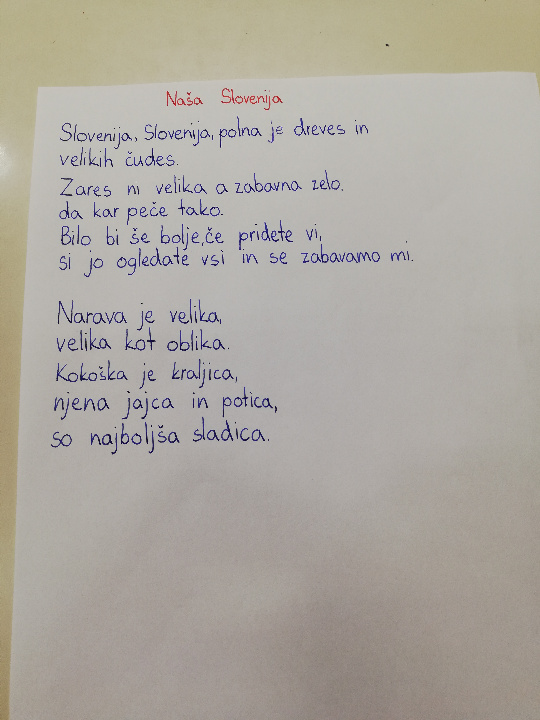 Naša Slovenija
Slovenija, Slovenija, polna je dreves in
velikih čudes.
Zares ni velika a zabavna zelo.
da kar peče tako.
Bilo bi še bolje,če pridete vi,
si jo ogledate vsi in se zabavamo mi.
Narava je velika,
velika kot oblika.
Kokoška je kraljica,
njena jajca in potica,
so najboljša sladica.